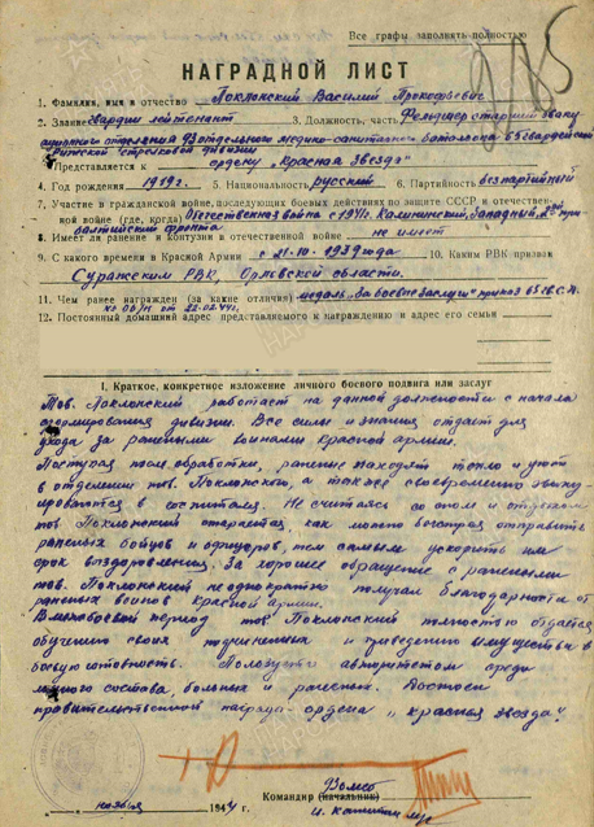 Все графы заполнять полностью
НАГРАДНОЙ ЛИСТ
1. Фамилия, имя и отчество Поклонский Василий Прокофьевич
2. Звание гвардии лейтенант 3. Должность, часть Фельдшер старший эваку
ационного отделения 73 отдельного медико-санитарного батальона 65 гвардейской
Рижской стрелковой дивизии
Представляется к ордену „Красная Звезда"
4. Год рождения 1919г. 5. Национальность русский 6. Партийность беспартийный
7. Участие в гражданской войне, последующих боевых действиях по защите СССР и отечествен-
ной войне (где, когда) Отечественная война с 1941г. Калининский, Западный, 2ой при-
балтийский фронта
8. Имеет ли ранение и контузии в отечественной войне не имеет
9. С какого времени в Красной Армии с 21-10-1939 года 10. Каким РВК призван
Суражским РВК, Орловской области.
11. Чем ранее награжден (за какие отличия) медаль „За боевые заслуги" приказ 65 гв.С.Д.
№ 06/н от 22.02.44г.
12. Постоянный домашний адрес представляемого к награждению и адрес его семьи
I. Краткое, конкретное изложение личного боевого подвига или заслуг
Тов. Поклонский работает на данной должности с начала
сформирования дивизии. Все силы и знания отдает для
ухода за ранеными воинами красной армии.
Поступая после обработки, раненые находят тепло и уют
в отделении тов. Поклонского, а также своевременно эваку-
ироваются в госпиталя. Не считаясь со сном и отдыхом
тов Поклонский старается, как можно быстрей отправить
раненых бойцов и офицеров, тем самым ускорить им
срок выздоровления. За хорошее обращение с ранеными
тов. Поклонский неоднократно получал благодарности от
раненых воинов красной армии.
В межбоевой период тов Поклонский полностью отдается
обучению своих подчиненных и приведению имущества в
боевую готовность. Пользуется авторитетом среди
личного состава, больных и раненых. Достоен
правительственной награды - ордена „Красная звезда".
Командир (начальник)
ноября 1944